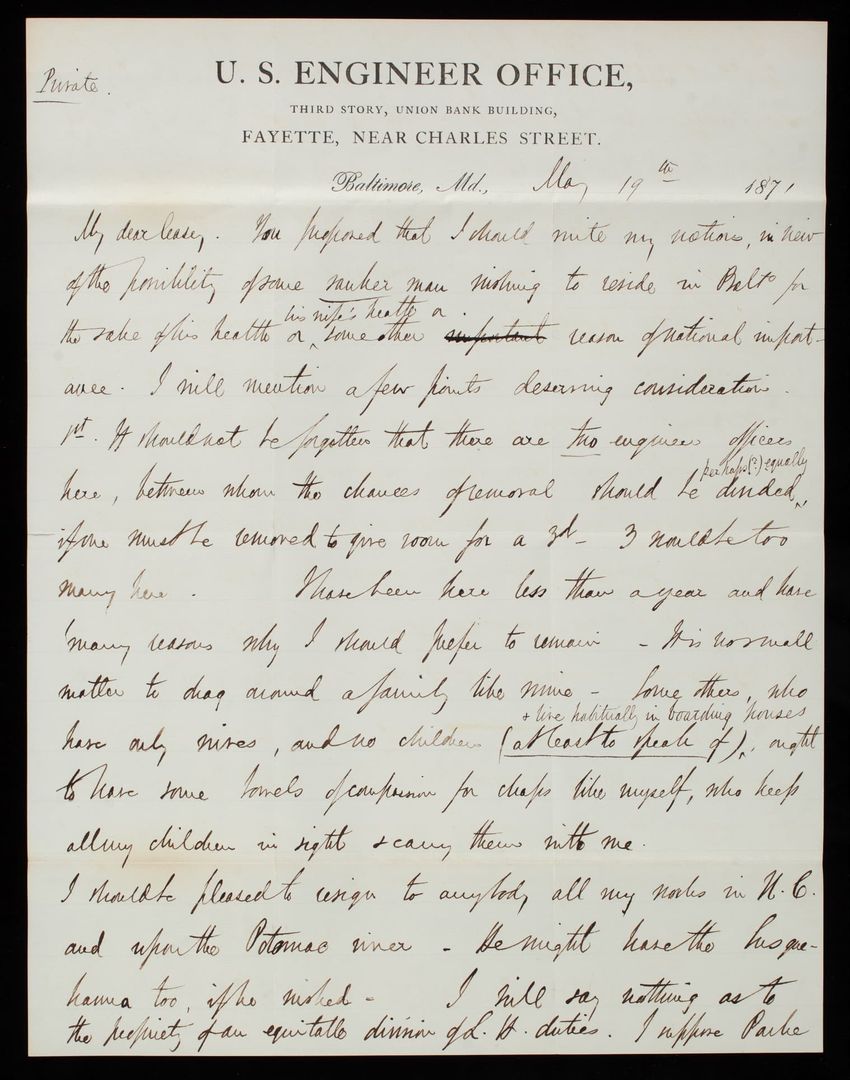 Private.
U. S. ENGINEER OFFICE,
THIRD STORY, UNION BANK BUILDING,
FAYETTE, NEAR CHARLES STREET.
Baltimore, Md., May 19th 1871
My dear Casey. You proposed that I should write my notions, in view
of the possibility of some man wishing to reside in Balto for
his wife's health or
the sake of his health or some other important reason of national import-
ance. I will mention a few points deserving consideration.
1st. It should not be forgotten that there are two engineer officers
perhaps (?) equally
here, between whom the chances of removal should be divided,
if one must be removed to give room for a 3d - 3 would be too
many here. I have been here less than a year and have
many reasons why I should prefer to remain - It is no small
matter to drag around a family like mine - Some others, who
+ live habitually in boarding houses
have only wives, and no children (at least to speak of), ought
to have some bowels of compassion for chaps like myself, who keep
all my children in sight & carry them with me.
I should be pleased to resign to anybody all my works in N. C.
and upon the Potomac river - He might have the Susque-
hanna too, if he wished - I will say nothing as to
the propriety of an equitable division of L. H. duties. I suppose Parke